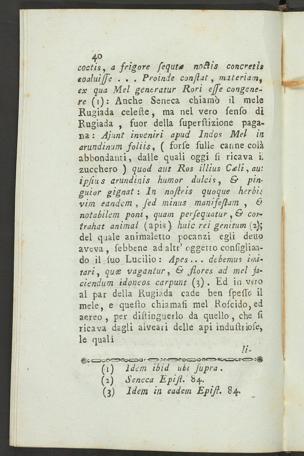 40
coctis, a frigore sequtæ noctis concretis
coaluisse . . . Proinde constat, materiam,
ex qua Mel generatur Rori esse congene-
re (1): Anche Seneca chiamò il mele
Rugiada celeste, ma nel vero senso di
Rugiada , fuor della superstizione paga-
na : Ajunt inveniri apud Indos Mel in
arundinum foliis, ( forse sulle canne colà
abbondanti, dalle quali oggi si ricava il
zucchero ) quod aut Ros illius Cæli, aut
ipsius arundinis humor dulcis, & pin-
guior gignat : In nostris quoque herbis
vim eandem, sed minus manifestam , &
notabilem poni, quam persequatur, & con-
trahat animal (apis) huic rei genitum (2);
del quale animaletto pocanzi egli detto
aveva, sebbene ad altr' oggetto consiglian-
do il suo Lucilio : Apes . . . debemus imi-
tari, quæ vagantur, & flores ad mel fa-
ciendum idoneos carpunt (3) . Ed in vero
al par della Rugiada cade ben spesso il
mele, e questo chiamasi mel Roscido, ed
aereo , per distinguerlo da quello , che si
ricava dagli alveari delle api industriose,
le quali
(1) Idem ibid ubi supra .
(2) Seneca Epist. 84.
(3) Idem in eadem Epist. 84.